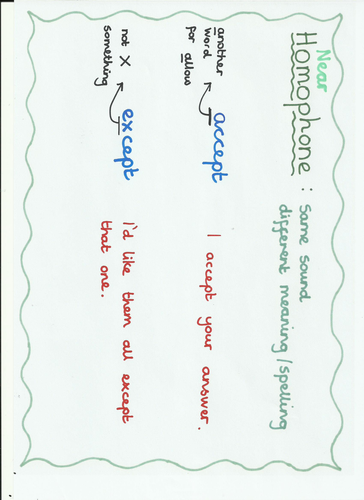 Near
Homophone: Same sound
different meaning/spelling
accept I accept your answer.
another
word
for allow
except I'd like them all except
that one.
not X
something